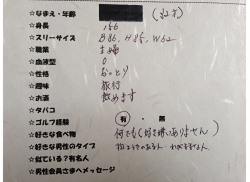 ☆なまえ・年齢
☆身長 156
☆スリーサイズ B86, H85, W62
☆職業 主婦
☆血液型 O
☆性格 おっとり
☆趣味 旅行
☆お酒 飲めます
☆タバコ
☆ゴルフ経験 有・無
☆好きな食べ物 何でも(好き嫌いありません)
☆好きな男性のタイプ
☆似ている?有名人
☆男性会員さまへメッセージ